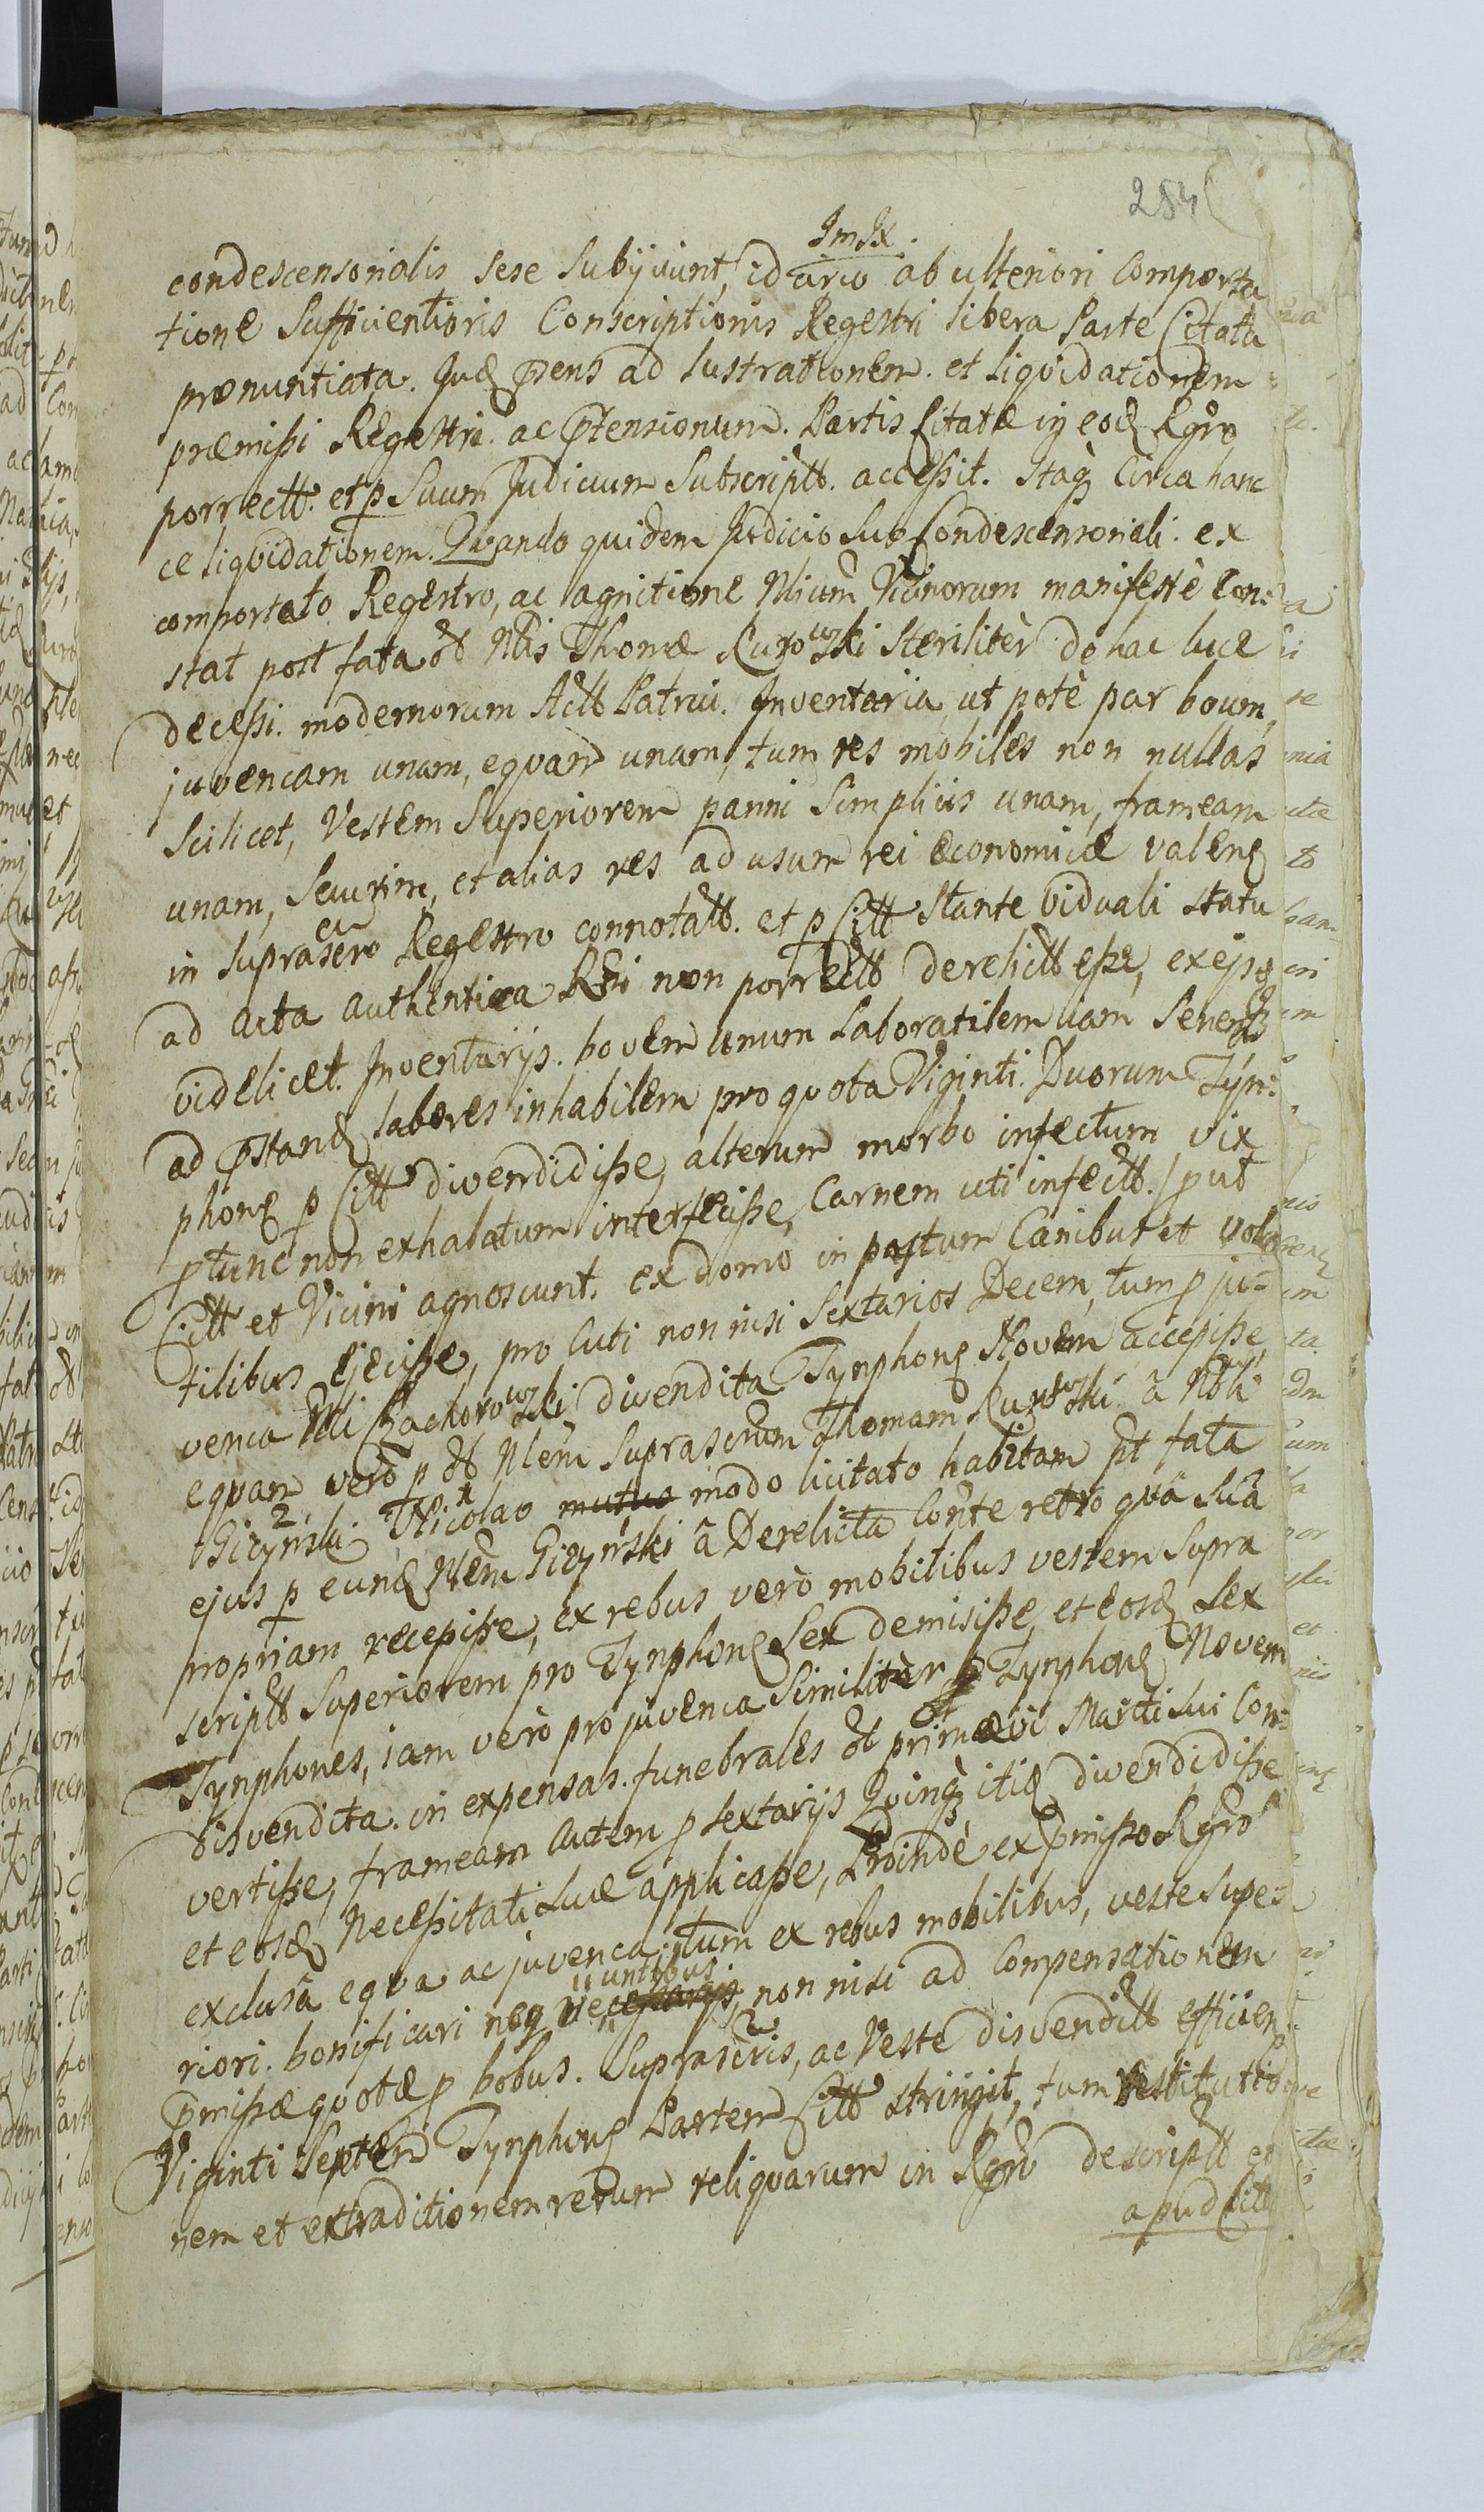 284
ImJx.
condescensorialis sese Subijciunt, id circo ab ulteriori Comporta
tione Sufficientioris Conscriptionis Regestri libera Parte Citata
pronuntiata. Jud psens ad lustrationem. et liquidationem
præmissi Regestri. ac ptensionum. Partis Citatæ in eod Rgro
porrectt. et p Suum Judicium Subscriptt. accessit. Itaq Circa hanc
ce liquidationem. Quando quidem Judicio Suo Condescensoriali. ex
comportato Regestro, ac agnitione Nlium Vicinorum manifestè Con:
stat post fata ol Nlis Thomæ Kurowski Steriliter de hac luce
decessi. modernorum Actt Patrui. Inventaria, ut potè par boum,
juvencam unam, equam unam, tum res mobiles non nullas
Scilicet, Vestem Superiorem panni Simplicis unam, frameam
unam, Securim, et alias res ad usum rei œconomicæ valeng
in Suprascro Regestro connotatt. et p Citt Stante Viduali statu
ad acta authentica Rsi non porrectt derelictt esse, ex ijsq
videlicet. Inventarijs. bovem unum Laboratilem iam Senem
ad pstand labores inhabilem pro quota Viginti. Duorum Tym:
phong p Citt divendidisse, alterum morbo infectum vix
ptunc non exhalatum interfecisse, Carnem uti infectt. put
Citt et Vicini agnoscunt. ex domo in pastum Canibus et vola
tilibus Ejecisse, pro Cuti non nisi Sextarios Decem, tum p ju=
venca Nli Chachorowski divendita Tynphong Novem accepisse,
equam verò p ol Nlem Suprascrum Thomam Kurowski a Nbli
Giczyński 2 Nicolao mutuo modo licitato habitam pt fata
ejus p eund Nlem Giczyński a Derelicta Conte retro quà Suâ
propriam recepisse, ex rebus verò mobilibus vestem Supra
scriptt Superiorem pro Tynphong Sex demisisse, et eosd Sex
Tynphones, iam verò pro juvenca Similiter p Tynphong Novem
disvendita. in expensas. funebrales ol primævi Mariti Sui Con:
vertisse, frameam autem p Sextarijs Quinq itid divendidisse
et eosd Necessitati Suæ applicasse, Proindè ex pmisso Rgro
exclusâ equa ac juvenca, tum ex rebus mobilibus, veste Supe:
riori. bonificari neq necessarijs untibus, non nisi ad Compensationem
pmissæ quotæ p bobus. Suprascris, ac Veste disvenditt efficien
Viginti Septem Tynphong Partem Citt stringit, tum restitutio
nem et extraditionem rerum reliquarum in Rgro descriptt et
apud Citt